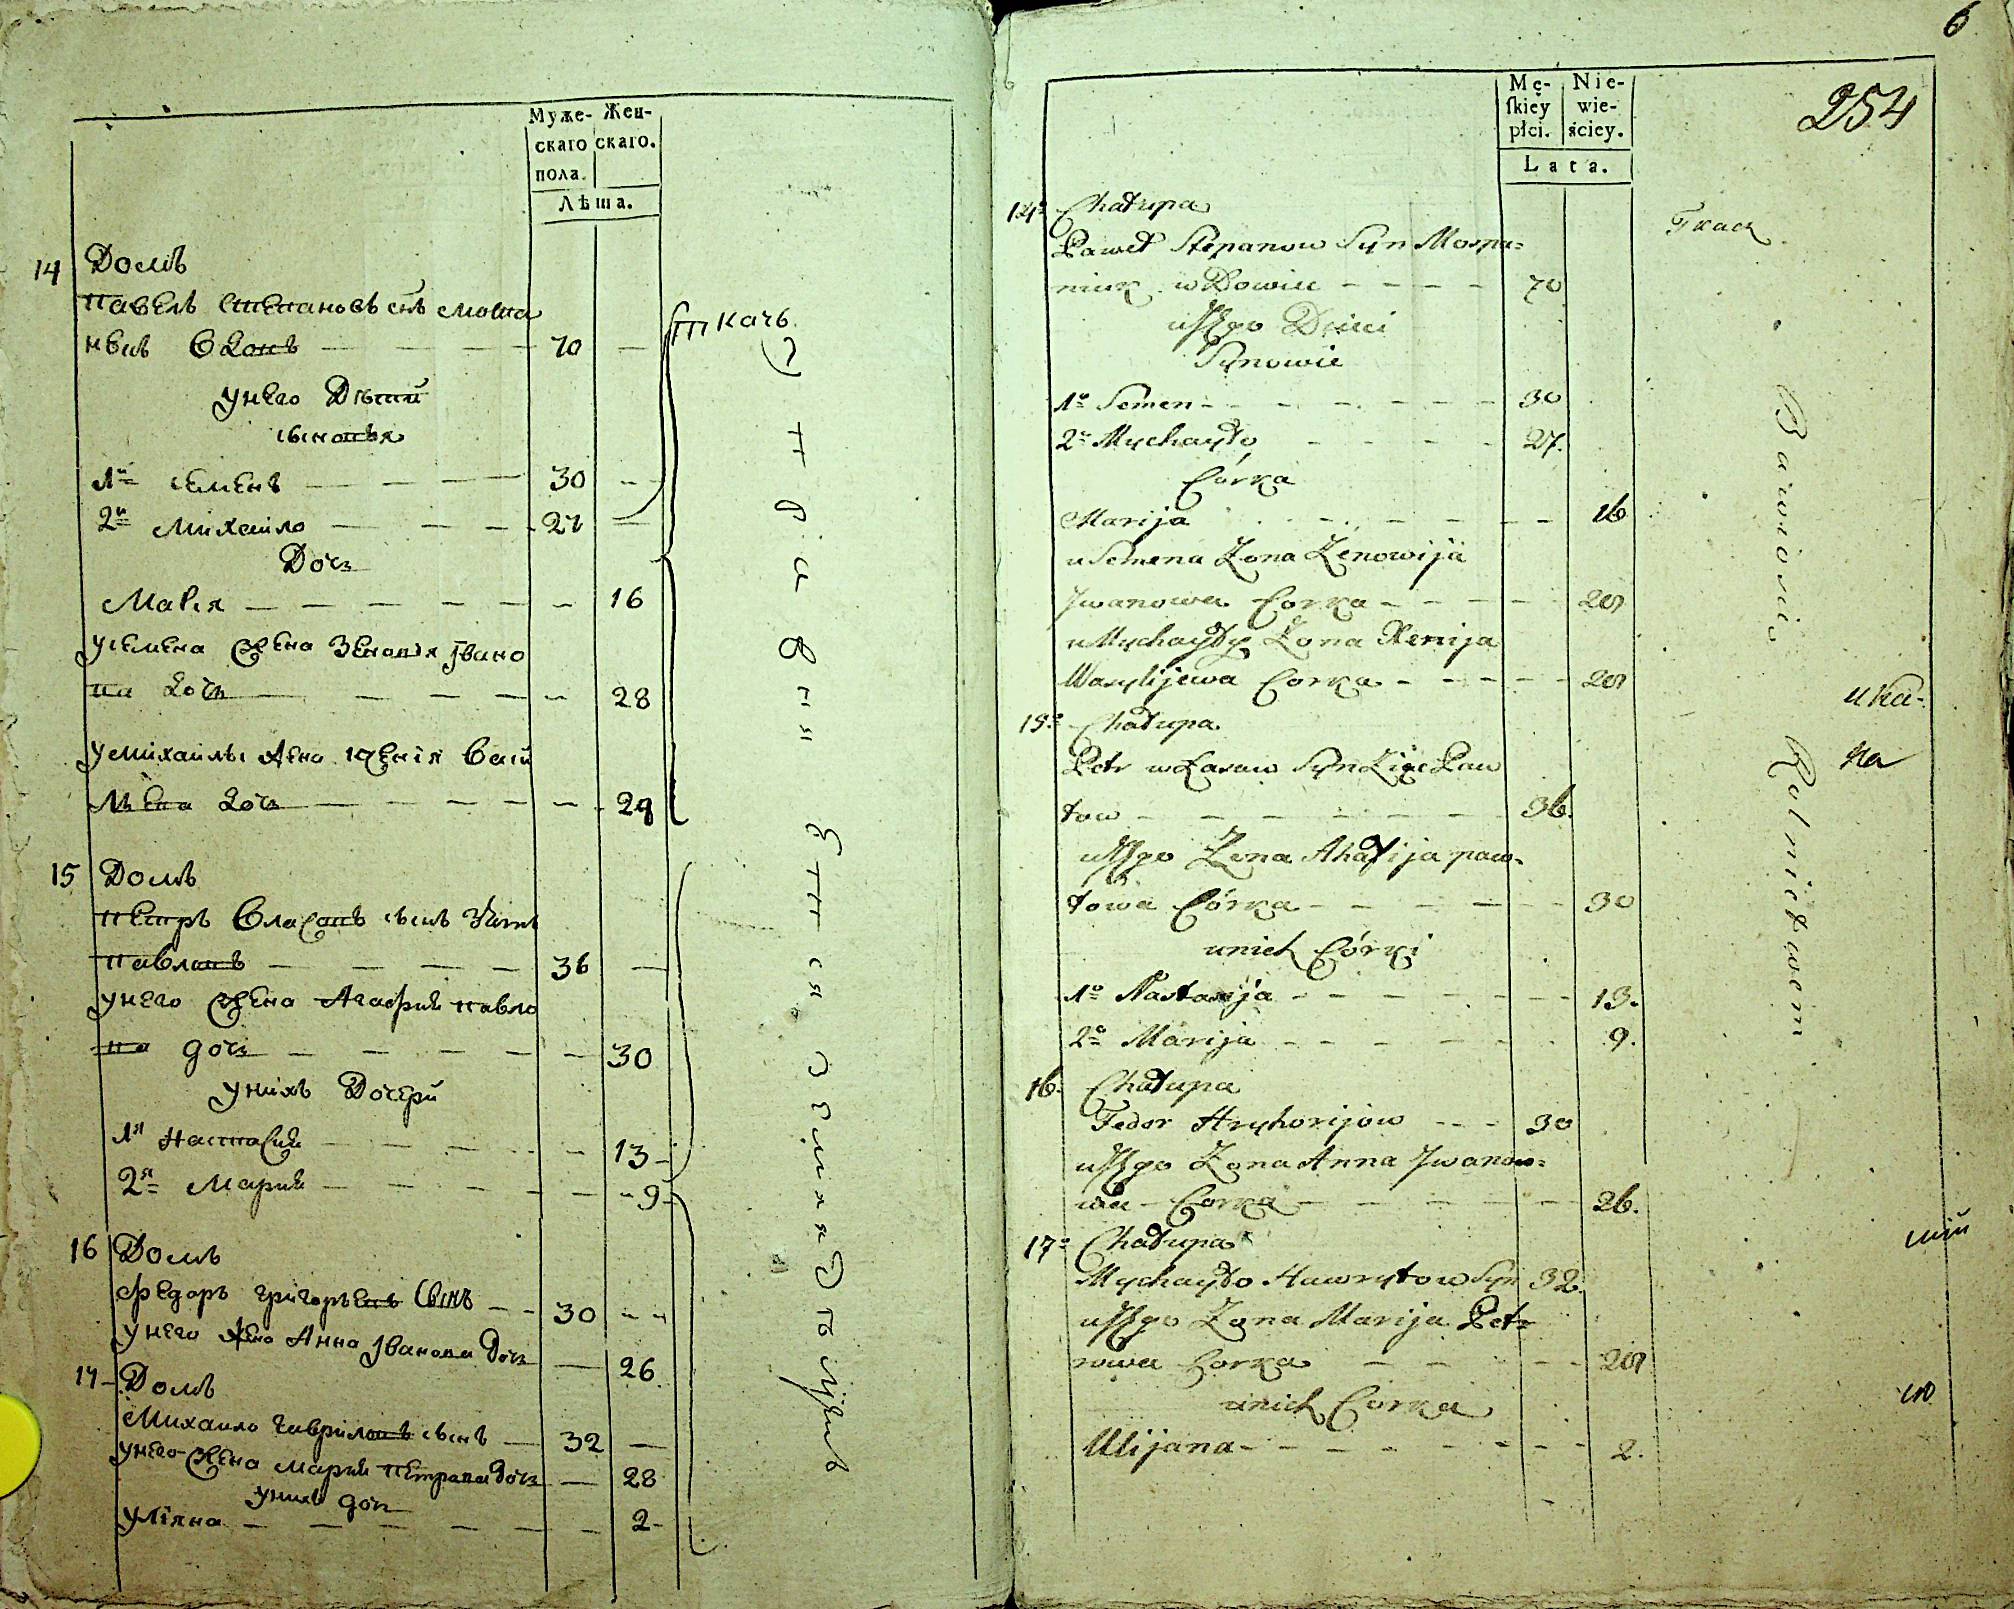 Муже- Жен-
скаго скаго.
пола.
Лѣта.
14 Домъ
павелъ степановъ снъ мошпа
нюкъ вдовъ — — — 70 —
унего Дѣти
сыновья
1й семенъ — — — 30 —
2й михайло — — — 27 —
Дочь
Марія — — — — — 16
усемена жена Зеновія Івано
ва дочь — — — — 28
умихайлы жена ксенія васи
лѣева дочь — — — — 29
15 Домъ
петръ власовъ сынъ зять
павловъ — — — — 36 —
унего жена Агафия павло
ва дочь — — — — 30
унихъ Дочери
1я настасия — — — — 13
2я Мария — — — — 9
16 Домъ
федоръ григорьевъ сынъ — 30 —
унего жена Анна Іванова дочь — 26
17 Домъ
Михаило гаврыловъ сынъ — 32 —
унего жена мария петрова дочь — 28
унихъ дочь
уліяна — — — — — 2
Ткачь
упражняются
земледельцы
6
254
Mę- Nie-
skiey wie-
płci. ściey.
Lata.
14º Chałupa
Paweł Stepanow Syn Moszpa-
niuk wdowiec — — — — 70
u Jego Dzieci
Synowie
1º Semen — — — — — 30
2º Mychayło — — — — 27.
Córka
Marija — — — — — 16
u Semena Zona Zenowija
Jwanowa Corka — — — — 28
u Mychayły Zona Xenija
Wasylijewa Corka — — — — 29
15º Chałupa
Petr własow Syn Zięć Paw
łow — — — — — 36.
u Jego Zona Ahafija paw-
łowa Córka — — — — 30
u nich Córki
1º Nastasija — — — — 13.
2º Marija — — — — 9.
16. Chałupa
Fedor Hryhorijow — — — 30
u Jego Zona Anna Jwano-
wa Corka — — — — 26.
17º Chałupa
Mychayło Hawryłow Syn 32.
u Jego Zona Marija Pet-
rowa Corka — — — — 28
u nich Corka
Ulijana — — — — — 2.
Tkacz.
Bawionie
Rolnictwem